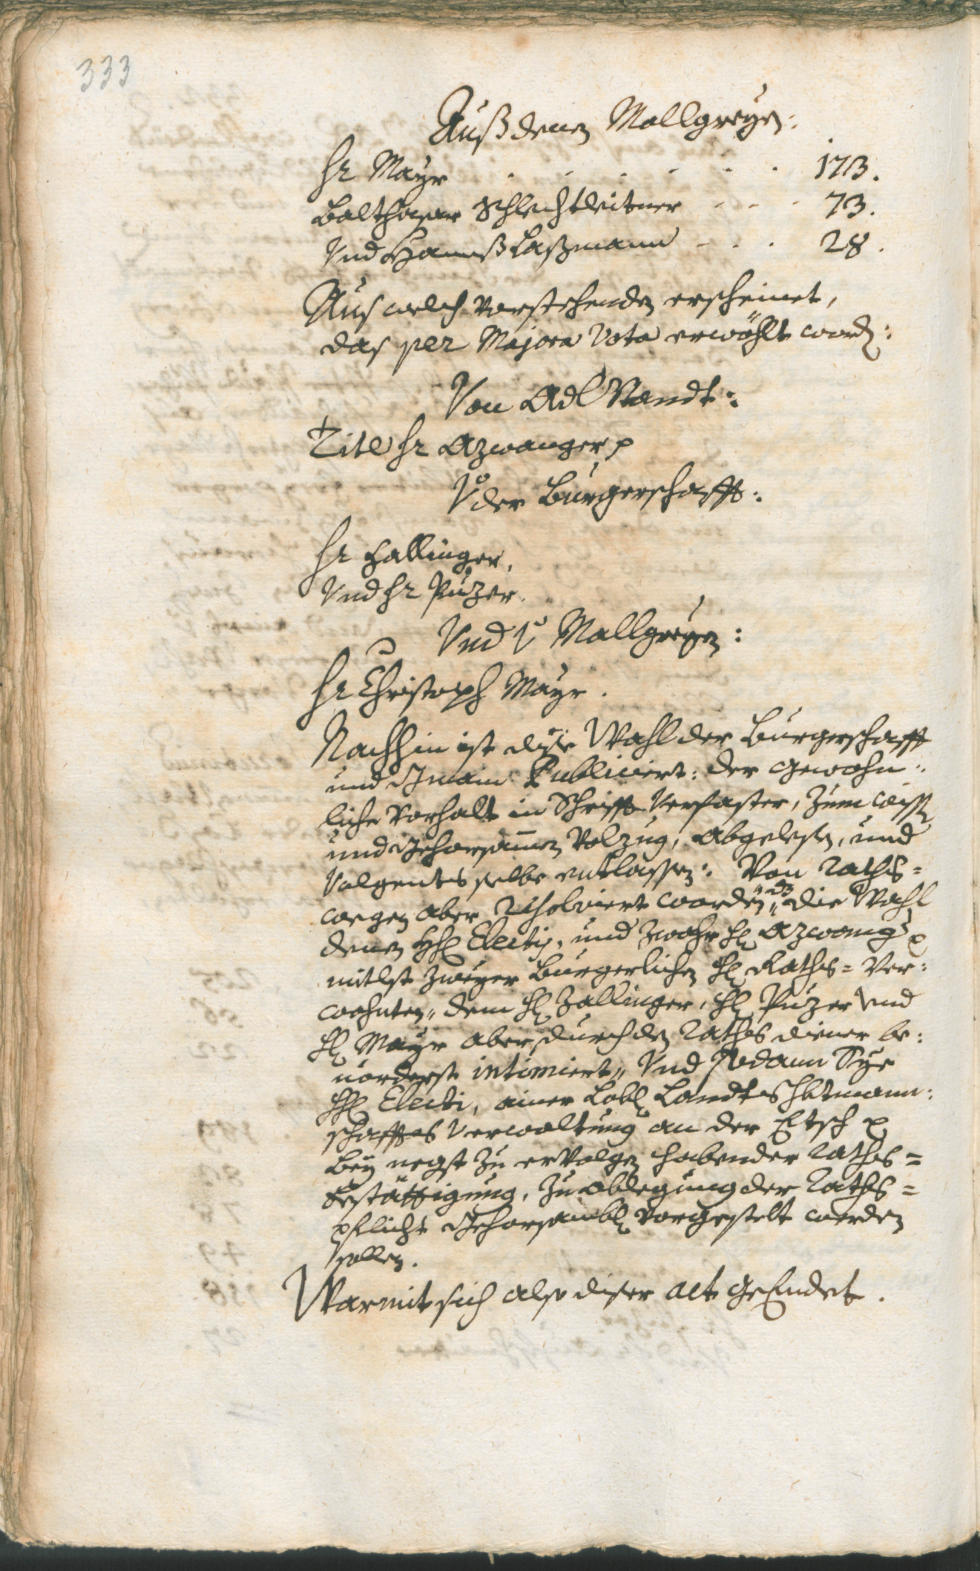 333
Auß denen Mallgreyen:
Hr Mayr - - - - - - 173.
Balthasar Schlechtleitner - - - 73.
Vnd Hannß Laßmann - - - 28.
Aus welch vorstehenden erscheinet,
das per Majora Vota erwöhlt word:
Von Adl Standt:
Titl Hr Azwanger p
Vo der Burgerschafft:
Hr Zallinger,
Vnd Hr Puzer.
Vnd Vo Mallgreyen:
Hr Christoph Mayr.
Nachhin ist dise Wahl der Burgerschafft
und Gmain Publiciert: der gewohn:
liche Vorhalt in Schrifft Verfaster, zum
und Gehorsamen Volzug, abgelesen, und
Volgents selbe entlassen: Von Raths=
wegen aber resolviert worden, dz die Wahl
denen HH Electis, und zwahr H Azwang p
mitlst zweyer Burgerlichen H Raths= Ver:
wohnten, dem H Zallinger, H Puzer vnd
H Mayr aber durch den Raths diener be:
vorderst intimiert, Vnd sodann Sye
HH Electi, ainer Lobl Landtshbtmann:
schaffts Verwaltung an der Etsch p
bey negst zu erVolgen habender Raths=
bestättigung, zu Ablegung der Raths=
pflicht Gehorsambl Vorgestelt werden
sollen.
Warmit sich also diser act geEndet.